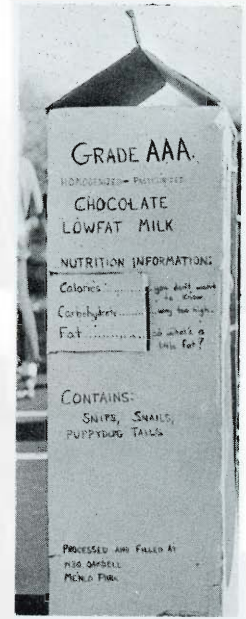 GRADE AAA
HOMOGENIZED - PASTEURIZED
CHOCOLATE
LOWFAT MILK
NUTRITION INFORMATION:
Calories ........ you don't want to know
Carbohydrate ...... way too high.
Fat ............ so what's a little fat?
CONTAINS:
SNIPS, SNAILS,
PUPPYDOG TAILS
PROCESSED AND FILLED AT
OAKDELL
MENLO PARK